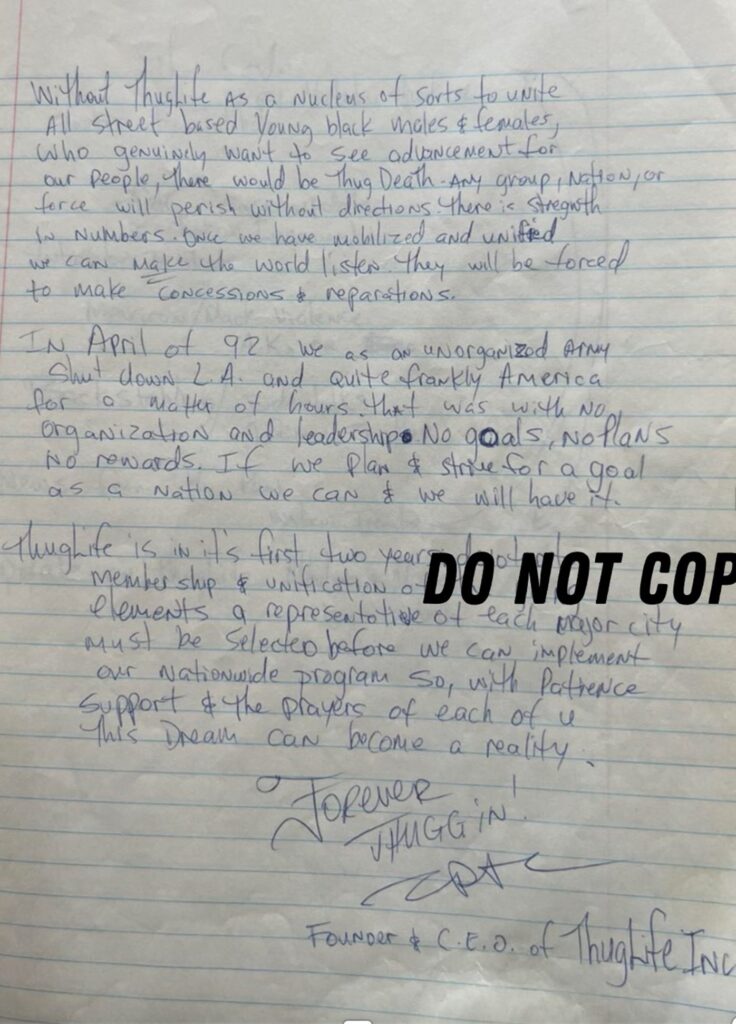 Without ThugLife as a nucleus of sorts to unite
All street based Young black males & females,
who genuinely want to see advancement for
our People, there would be Thug Death. Any group, Nation, or
force will perish without directions. There is stregnth
in numbers. Once we have mobilized and unified
we can make the world listen. They will be forced
to make concessions & reparations.
In April of 92 we as an unorganized army
Shut down L.A. and quite frankly America
for a matter of hours. that was with no
organization and leadership. No goals, no Plans
no rewards. If we Plan & strive for a goal
as a nation we can & we will have it.
ThugLife is in it's first two years
membership & unification of
DO NOT COP
elements a representative of each major city
must be selected before we can implement
our nationwide program So, with Patience
Support & the prayers of each of u
this Dream can become a reality.
Forever
THUGGiN!
Founder & C.E.O. of ThugLife Inc